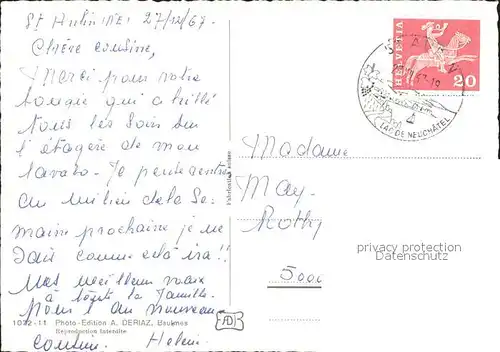 St Aubin (NE) 27/12/67
Chère cousine,
Merci pour votre
bougie qui a brillé
tous les soirs sur
l'étagère de mon
lavabo. Je
au milieu de la Se-
maine prochaine je ne
sais comme cela ira!!
Mes meilleurs vœux
à toute la famille
pour l'an nouveau
cousin. Helen
1032-11 Photo-Edition A. DERIAZ, Baulmes
Reproduction interdite
AD
Fabrication suisse
HELVETIA
20
LAC DE NEUCHÂTEL
Madame
May
5000
privacy protection
Datenschutz